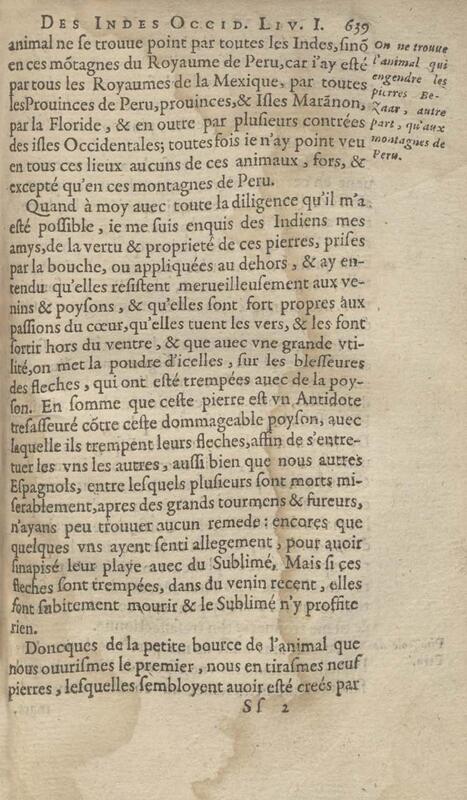 DES INDES OCCID. LIV. I. 639
animal ne se trouue point par toutes les Indes, sinõ
en ces mõtagnes du Royaume de Peru, car i'ay esté
par tous les Royaumes de la Mexique, par toutes
lesProuinces de Peru, prouinces, & Isles Marãnon,
par la Floride, & en outre par plusieurs contrées
des isles Occidentales; toutes fois ie n'ay point veu
en tous ces lieux aucuns de ces animaux, fors, &
excepté qu'en ces montagnes de Peru.
On ne trouue
l'animal qui
engendre les
pierres Be-
zaar, autre
part, qu'aux
montagnes de
Peru.
Quand à moy auec toute la diligence qu'il m'a
esté possible, ie me suis enquis des Indiens mes
amys, de la vertu & proprieté de ces pierres, prises
par la bouche, ou appliquées au dehors, & ay en-
tendu qu'elles resistent merueilleusement aux ve-
nins & poysons, & qu'elles sont fort propres aux
passions du cœur, qu'elles tuent les vers, & les font
sortir hors du ventre, & que auec vne grande vti-
lité, on met la poudre d'icelles, sur les blesseures
des fleches, qui ont esté trempées auec de la poy-
son. En somme que ceste pierre est vn Antidote
tresasseuré cõtre ceste dommageable poyson, auec
laquelle ils trempent leurs fleches, affin de s'entre-
tuer les vns les autres, aussi bien que nous autres
Espagnols, entre lesquels plusieurs sont morts mi-
serablement, apres des grands tourmens & fureurs,
n'ayans peu trouuer aucun remede: encores que
quelques vns ayent senti allegement, pour auoir
sinapisé leur playe auec du Sublimé, Mais si ces
fleches sont trempées, dans du venin recent, elles
font subitement mourir & le Sublimé n'y proffite
rien.
Doncques de la petite bource de l'animal que
nous ouurismes le premier, nous en tirasmes neuf
pierres, lesquelles sembloyent auoir esté creés par
Sſ 2